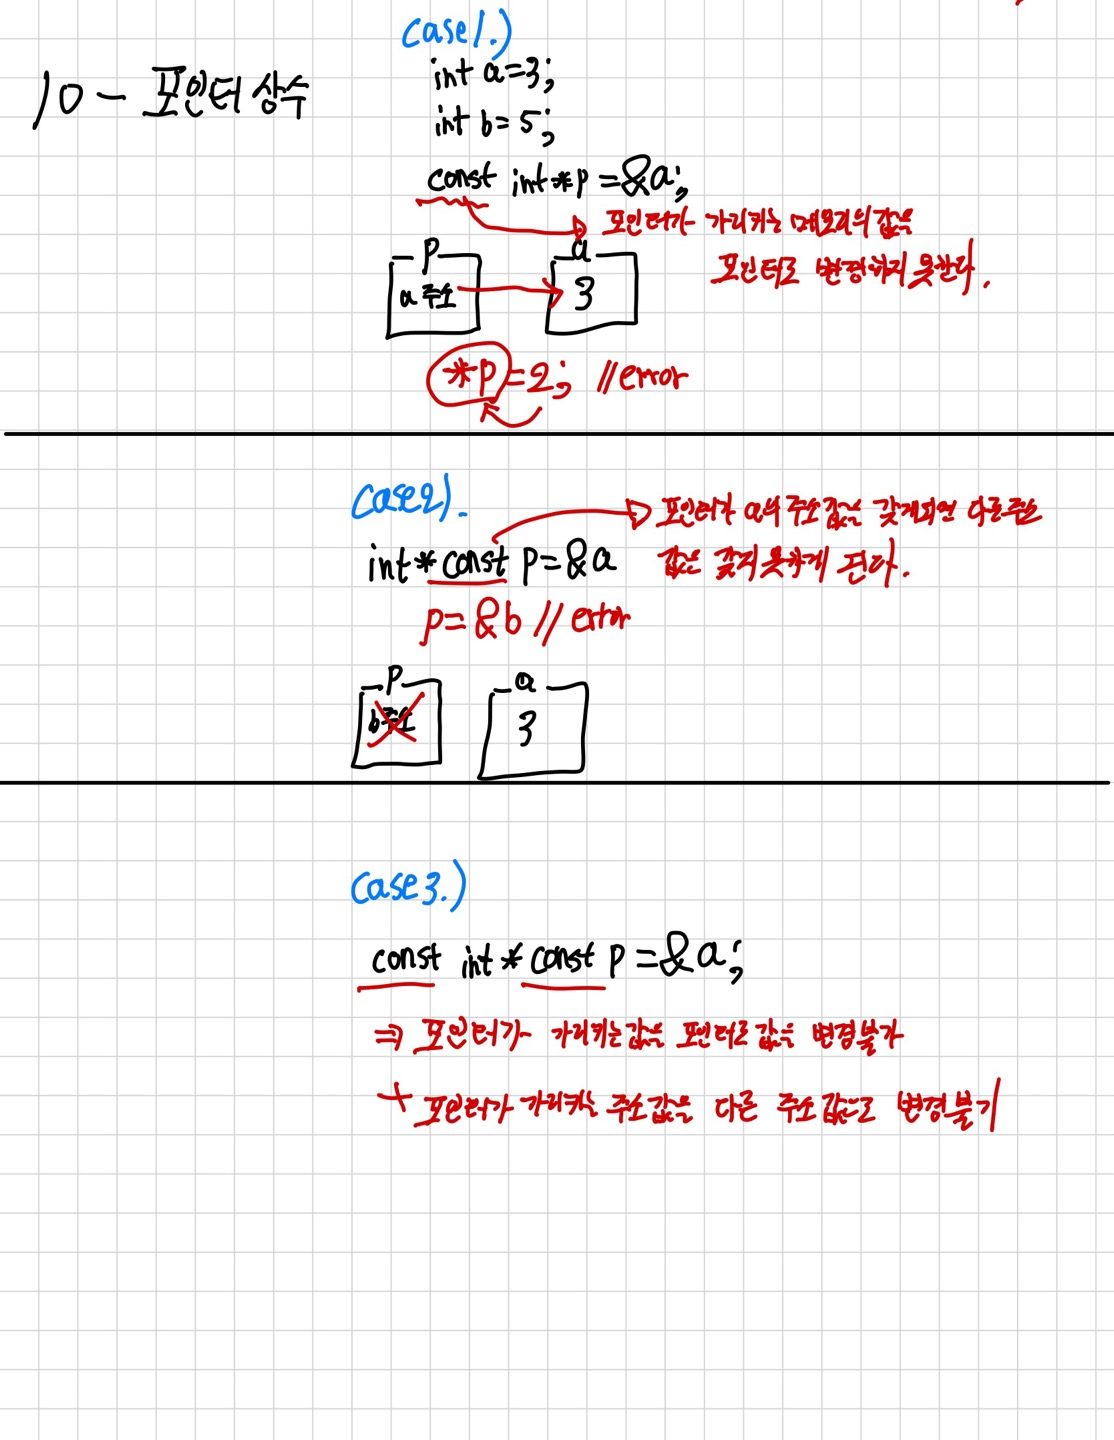 10 - 포인터 상수
Case1.)
int a=3;
int b=5;
const int*p=&a;
포인터가 가리키는 메모리의 값을
포인터로 변경하지 못한다.
p
a 주소
a
3
*p=2; //error
Case2).
int*const p=&a
포인터가 a의 주소값을 갖게되면 다른주소
값을 갖지못하게 된다.
p=&b //error
p
b주소
a
3
Case3.)
const int*const p=&a;
⇒ 포인터가 가리키는값을 포인터로값을 변경불가
+ 포인터가 가리키는 주소값을 다른 주소값으로 변경불가